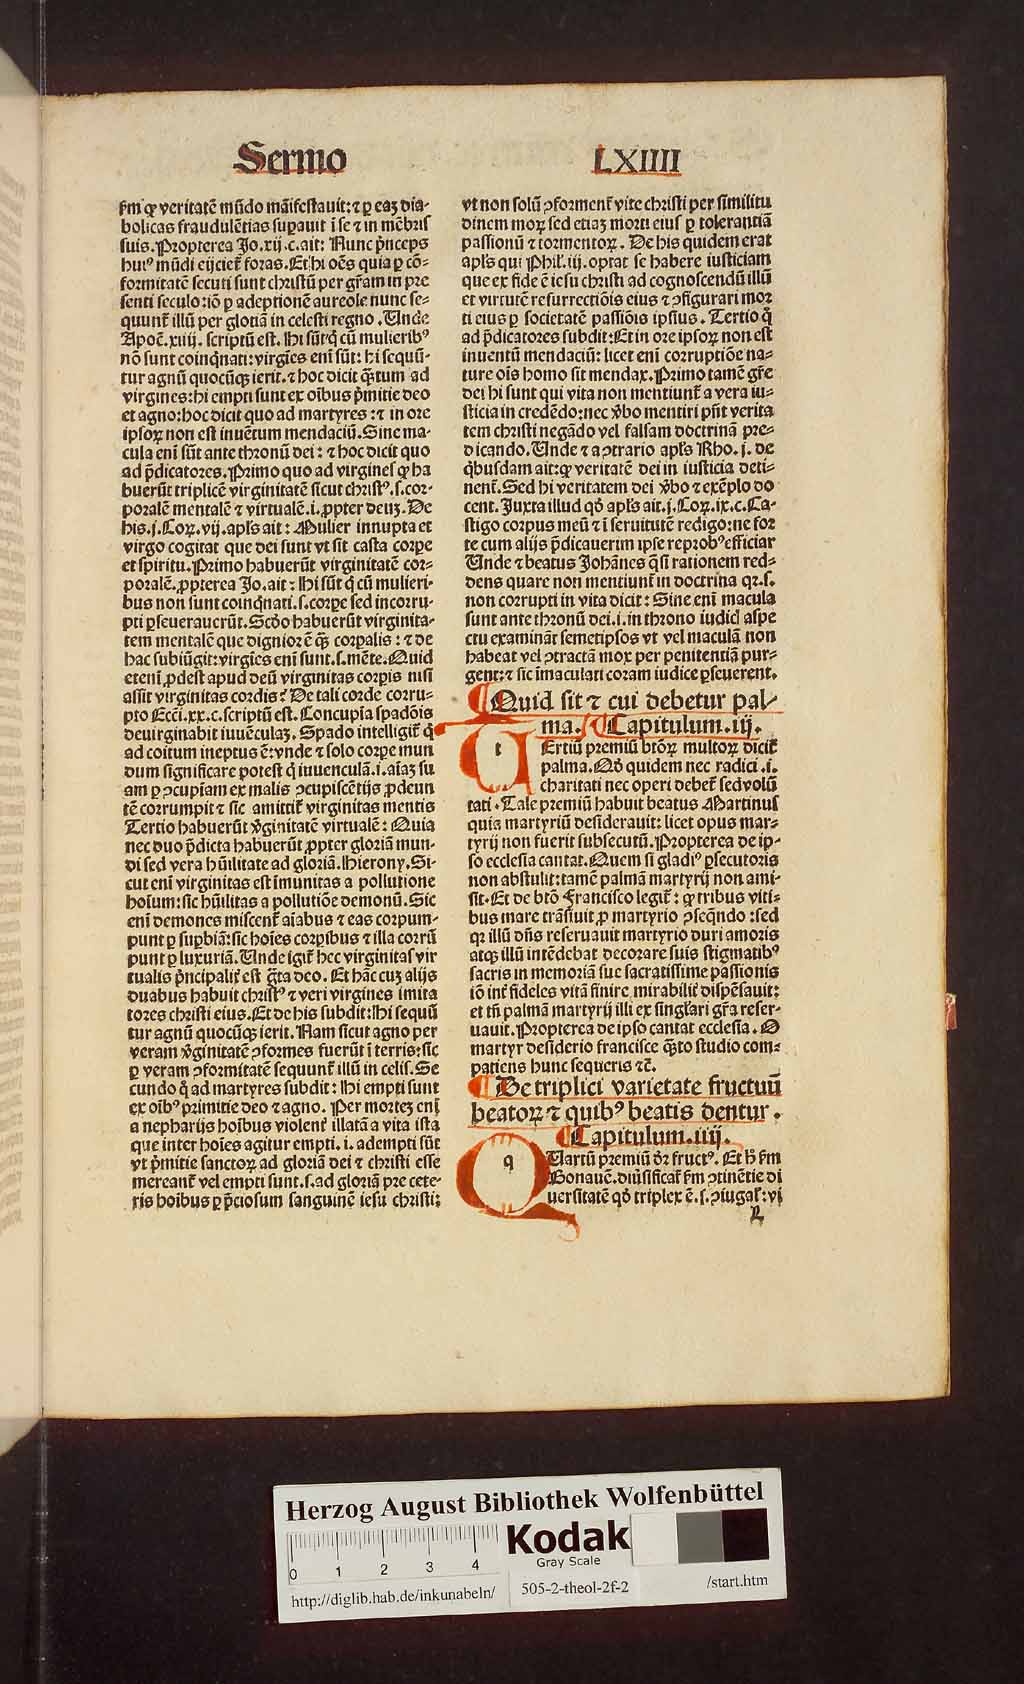 Sermo
LXIIII
ẜm ꝙ veritatē mūdo māifestauit: ⁊ ꝑ eaꝫ dia-
bolicas fraudulētias suꝑauit ī se ⁊ in mēbris
suis. Propterea Jo. xij. c. ait: Nunc pͥnceps
huiꝰ mūdi eijcieť foras. Et hi oēs quia ꝑ cō-
formitatē secuti sunt christū per gr̄am in pre
senti seculo: iō ꝑ adeptionē aureole nunc se-
quunť illū per gloriā in celesti regno. Unde
Apoc̄. xiiij. scriptū est. Hi sūt qͥ cū mulieribꝰ
nō sunt coinqͥnati: virgīes enī sūt: hi sequū-
tur agnū quocūqꝫ ierit. ⁊ hoc dicit qͣꝫtum ad
virgines: hi empti sunt ex oībus pͥmitie deo
et agno: hoc dicit quo ad martyres: ⁊ in ore
ipsoꝝ non est inuētum mendaciū. Sine ma-
cula enī sūt ante thronū dei: ⁊ hoc dicit quo
ad p̄dicatores. Primo quo ad virgines ꝙ ha
buerūt triplicē virginitatē sicut christꝰ. s. cor-
poralē mentalē ⁊ virtualē. i. ꝓpter deuꝫ. De
his. j. Coꝝ. vij. apľs ait: Mulier innupta et
virgo cogitat que dei sunt vt sit casta corꝑe
et spiritu. Primo habuerūt virginitatē cor-
poralē. ꝓpterea Jo. ait: Hi sūt qͥ cū mulieri-
bus non sunt coinqͥnati. s. corꝑe sed incorru-
pti ꝑseuerauerūt. Scd̄o habuerūt virginita-
tem mentalē que dignior ē qͣꝫ corꝑalis: ⁊ de
hac subiūgit: virgīes enī sunt. s. mēte. Quid
etenī ꝓdest apud deū virginitas corꝑis nisi
assit virginitas cordis? De tali corde corru-
pto Ecci. xx. c. scriptū est. Concupīa spadōis
deuirginabit iuuēculaꝫ. Spado intelligiť qͥ
ad coitum ineptus ē: vnde ⁊ solo corꝑe mun
dum significare potest qͥ iuuenculā. i. aīaꝫ su
am ꝑ ꝯcupīam ex malis ꝯcupiscētijs ꝓdeun
tē corrumpit ⁊ sic amittiť virginitas mentis
Tertio habuerūt v̓ginitatē virtualē: Quia
nec duo p̄dicta habuerūt ꝓpter gloriā mun-
di sed vera hūilitate ad gloriā. Hierony. Si-
cut enī virginitas est īmunitas a pollutione
hoīum: sic hūilitas a pollutiōe demonū. Sic
enī demones miscenť aīabus ⁊ eas corrum-
punt ꝑ suꝑbiā: sic hoīes corꝑibus ⁊ illa corrū
punt ꝑ luxuriā. Unde igiť hec virginitas vir
tualis pͥncipaliť est gͣta deo. Et hāc cuꝫ alijs
duabus habuit christꝰ ⁊ veri virgines imita
tores christi eius. Et de his subdit: Hi sequū
tur agnū quocūqꝫ ierit. Nam sicut agno per
veram v̓ginitatē ꝯformes fuerūt ī terris: sic
ꝑ veram ꝯformitatē sequunť illū in celis. Se
cundo qͦ ad martyres subdit: Hi empti sunt
ex oībꝰ primitie deo ⁊ agno. Per morteꝫ enī
a nepharijs hoībus violenť illatā a vita ista
que inter hoīes agitur empti. i. adempti sūt
vt pͥmitie sanctoꝝ ad gloriā dei ⁊ christi esse
mereanť vel empti sunt. s. ad gloriā pre cete-
ris hoībus ꝑ p̄ciosum sanguinē iesu christi:
vt non solū ꝯformenť vite christi per similitu
dinem moꝝ sed etiaꝫ morti eius ꝑ tolerantiā
passionū ⁊ tormentoꝝ. De his quidem erat
apľs qui Phiľ. iij. optat se habere iusticiam
que ex fide ē iesu christi ad cognoscendū illū
et virtutē resurrectiōis eius ⁊ ꝯfigurari mor
ti eius ꝑ societatē passiōis ipsius. Tertio qͦ
ad p̄dicatores subdit: Et in ore ipsoꝝ non est
inuentū mendaciū: licet enī corruptiōe na-
ture oīs homo sit mendax. Primo tamē gr̄e
dei hi sunt qui vita non mentiunť a vera iu-
sticia in credēdo: nec v̓bo mentiri pn̄t verita
tem christi negādo vel falsam doctrinā pre-
dicando. Unde ⁊ a ꝯtrario apľs Rho. j. de
qͥbusdam ait: ꝙ veritatē dei in iusticia deti-
nenť. Sed hi veritatem dei v̓bo ⁊ exēplo do
cent. Juxta illud qd̓ apľs ait. j. Coꝝ. ix. c. Ca-
stigo corpus meū ⁊ ī seruitutē redigo: ne for
te cum alijs p̄dicauerim ipse reprobꝰ efficiar
Unde ⁊ beatus Johānes qͣsi rationem red-
dens quare non mentiunť in doctrina qꝛ. s.
non corrupti in vita dicit: Sine enī macula
sunt ante thronū dei. i. in throno iudicij aspe
ctu examināt semetipsos vt vel maculā non
habeat vel ꝯtractā mox per penitentiā pur-
gent: ⁊ sic īmaculati coram iudice ꝑseuerent.
¶ Quid sit ⁊ cui debetur pal-
ma. ¶ Capitulum. iij.
t Ertiū premiū btōꝝ multoꝝ diciť
palma. Qd̓ quidem nec radici. i.
charitati nec operi debeť sed volū
tati. Tale premiū habuit beatus Martinus
quia martyriū desiderauit: licet opus mar-
tyrij non fuerit subsecutū. Propterea de ip-
so ecclesia cantat. Quem si gladiꝰ ꝑsecutoris
non abstulit: tamē palmā martyrij non ami-
sit. Et de btō Francisco legiť: ꝙ tribus viti-
bus mare trāsiuit ꝓ martyrio ꝯseqͣndo: sed
qꝛ illū dn̄s reseruauit martyrio duri amoris
atqꝫ illū intēdebat decorare suis stigmatibꝰ
sacris in memoriā sue sacratissime passionis
iō inť fideles vitā finire mirabiliť dispēsauit:
et tn̄ palmā martyrij illi ex singľari gr̄a reser-
uauit. Propterea de ipso cantat ecclesia. O
martyr desiderio francisce qͣꝫto studio com-
patiens hunc sequeris ⁊c̄.
¶ De triplici varietate fructuū
beatoꝝ ⁊ quibꝰ beatis dentur.
¶ Capitulum. iiij.
q Uartū premiū dr̄ fructꝰ. Et h̓ ẜm
Bonauē. diu̓sificať ẜm ꝯtinētie di
uersitatē qd̓ triplex ē. s. ꝯiugaľ: vi
R
Herzog August Bibliothek Wolfenbüttel
0 1 2 3 4
Kodak
Gray Scale
http://diglib.hab.de/inkunabeln/
505-2-theol-2f-2
/start.htm